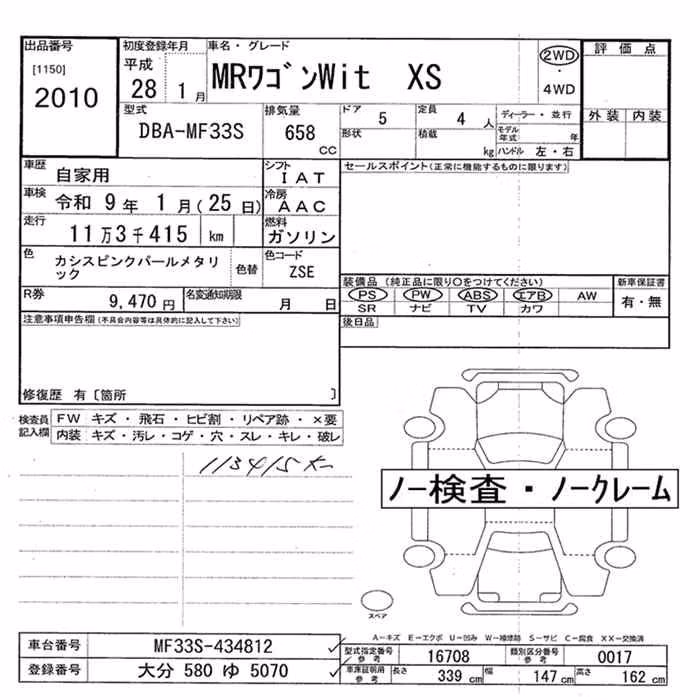 出品番号
[1150]
2010
初度登録年月
平成
28 1 月
車名・グレード
MRワゴンWit XS
2WD
・
4WD
評価点
外装 内装
型式
DBA-MF33S
排気量
658
CC
ドア
5
定員
4 人
形状
積載
kg
ディーラー・並行
モデル年式 年
ハンドル 左・右
車歴
自家用
シフト
IAT
車検
令和 9 年 1 月 ( 25 日)
冷房
AAC
走行
11 万 3 千 415 km
燃料
ガソリン
色
カシスピンクパールメタリ
ック
色替
色コード
ZSE
R券
9,470 円
名変通知期限
月 日
セールスポイント(正常に機能するものに限ります)
装備品 (純正品に限り○をつけてください)
PS PW ABS エアB AW
SR ナビ TV カワ
新車保証書
有・無
後日品
注意事項申告欄(不具合内容等は具体的に記入して下さい)
修復歴 有〔箇所 〕
検査員
記入欄
FW キズ・飛石・ヒビ割・リペア跡・×要
内装 キズ・汚レ・コゲ・穴・スレ・キレ・破レ
113415K
ノー検査・ノークレーム
スペア
A-キズ E-エクボ U-凹み W-補修跡 S-サビ C-腐食 XX-交換済
車台番号
MF33S-434812
登録番号
大分 580 ゆ 5070
型式指定番号
参考
16708
類別区分番号
参考
0017
車庫証明用
参考
長さ 339 cm 幅 147 cm 高さ 162 cm